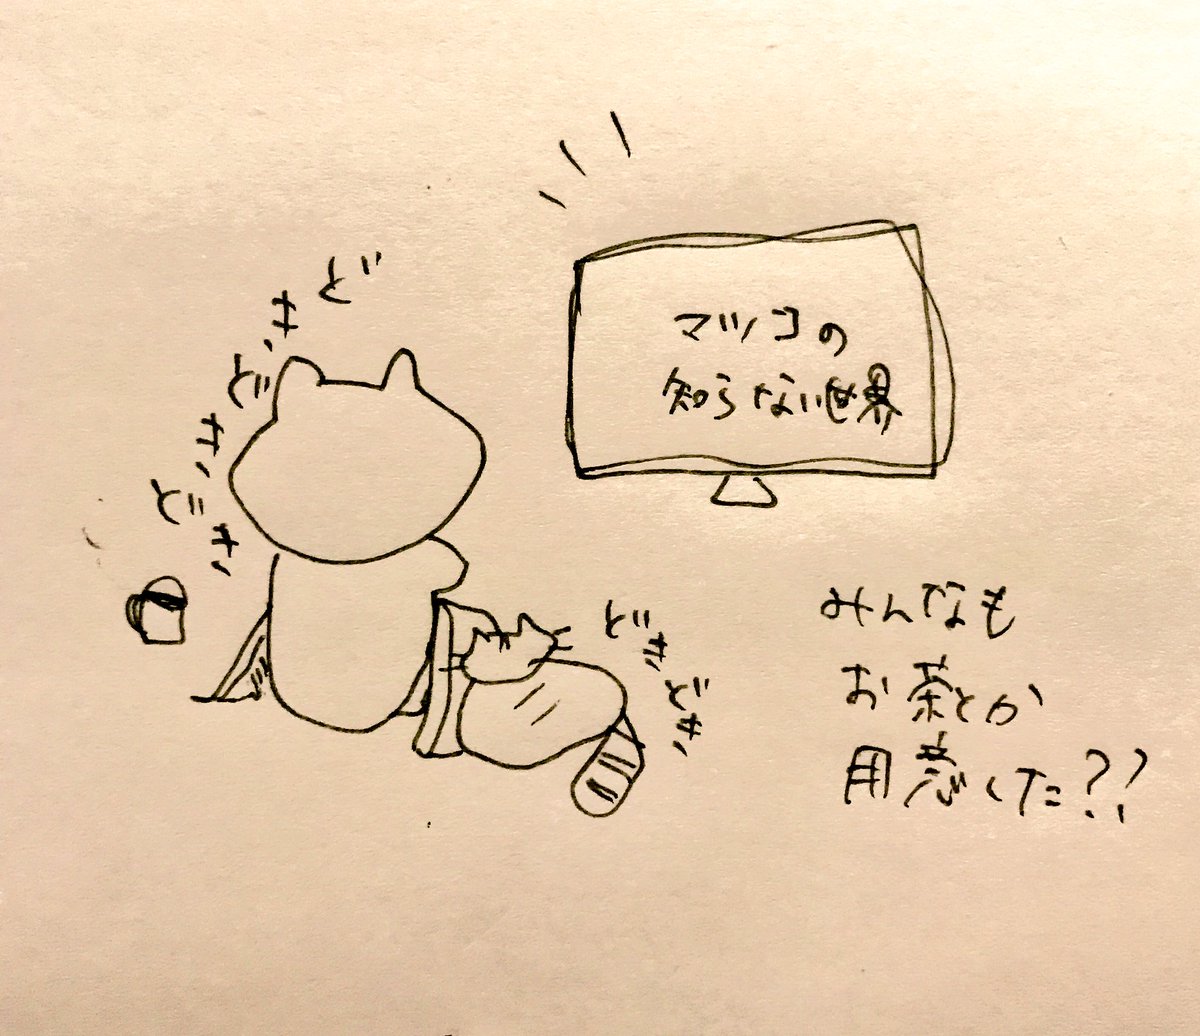 どきどきどき
マツコの
知らない世界
どきどき
みんなも
お茶とか
用意した??